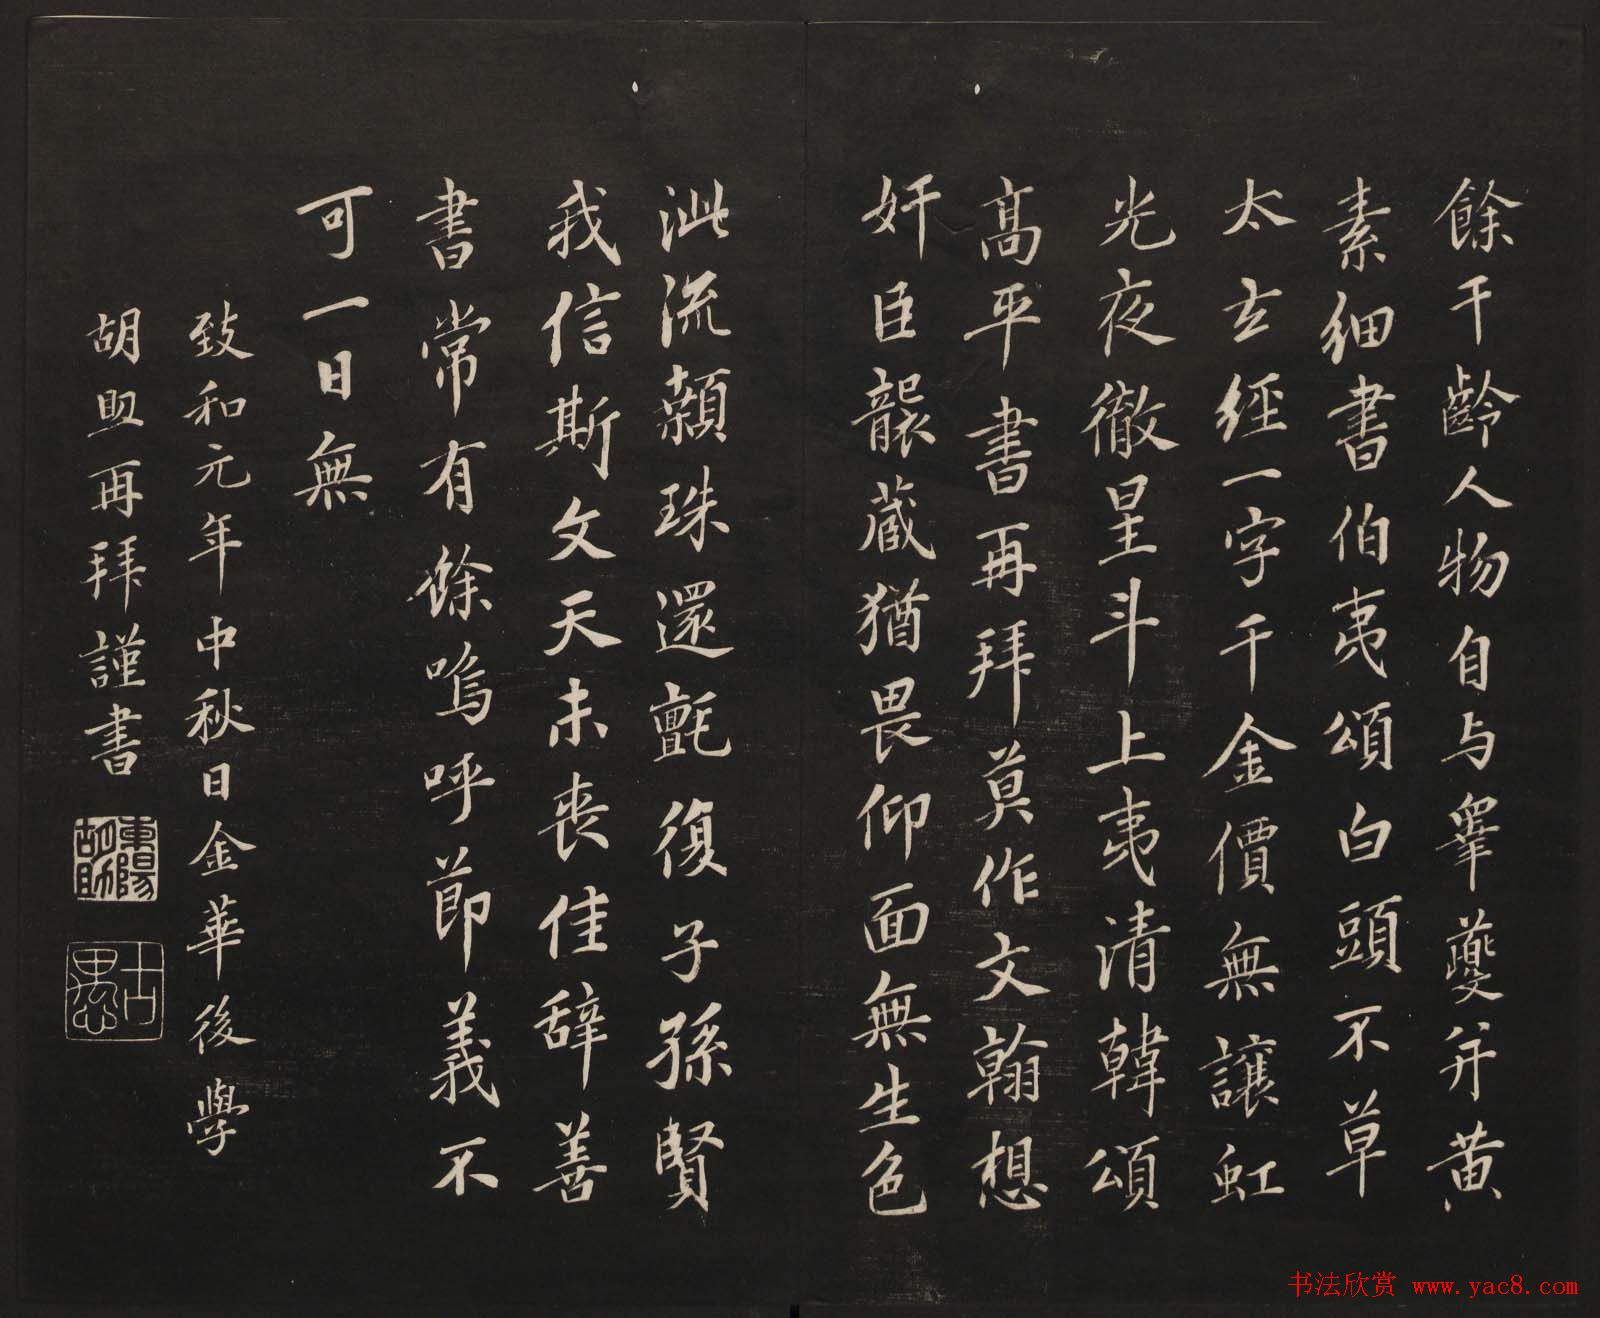 餘千齡人物自与皋夔并黄
素細書伯夷頌白頭不草
太玄經一字千金價無讓虹
光夜徹星斗上夷清韓頌
髙平書再拜莫作文翰想
奸臣襲蔵猶畏仰面無生色
泚流顙珠還氈復子孫賢
我信斯文天未丧佳辞善
書常有餘嗚呼節義不
可一日無
致和元年中秋日金華後學
胡助再拜謹書
東陽胡助
古愚
书法欣赏 www.yac8.com